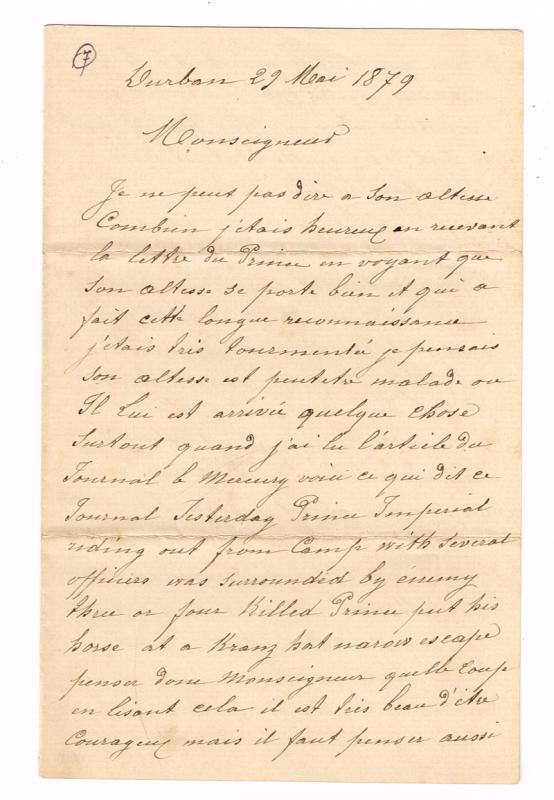 7
Durban 29 Mai 1879
Monseigneur
Je ne peut pas dire a Son altesse
Combien j'etais heureux en recevant
la lettre du Prince en voyant que
Son altesse se porte bien et qui a
fait cette longue reconnaissance
j'etais tris tourmenté je pensais
Son altesse est peutetre malade ou
Il Lui est arrivée quelque chose
Surtout quand j'ai lu l'article du
Journal le Mercury voici ce qui dit ce
Journal Jesterday Prince Imperial
riding out from Camp with several
officers was surrounded by énemy
thre or four Killed Prince put his
horse at a Kranz hat narow escape
penser donc Monseigneur quelle Coup
en lisant cela il est tris beau d'étre
Courageux mais il faut penser aussi